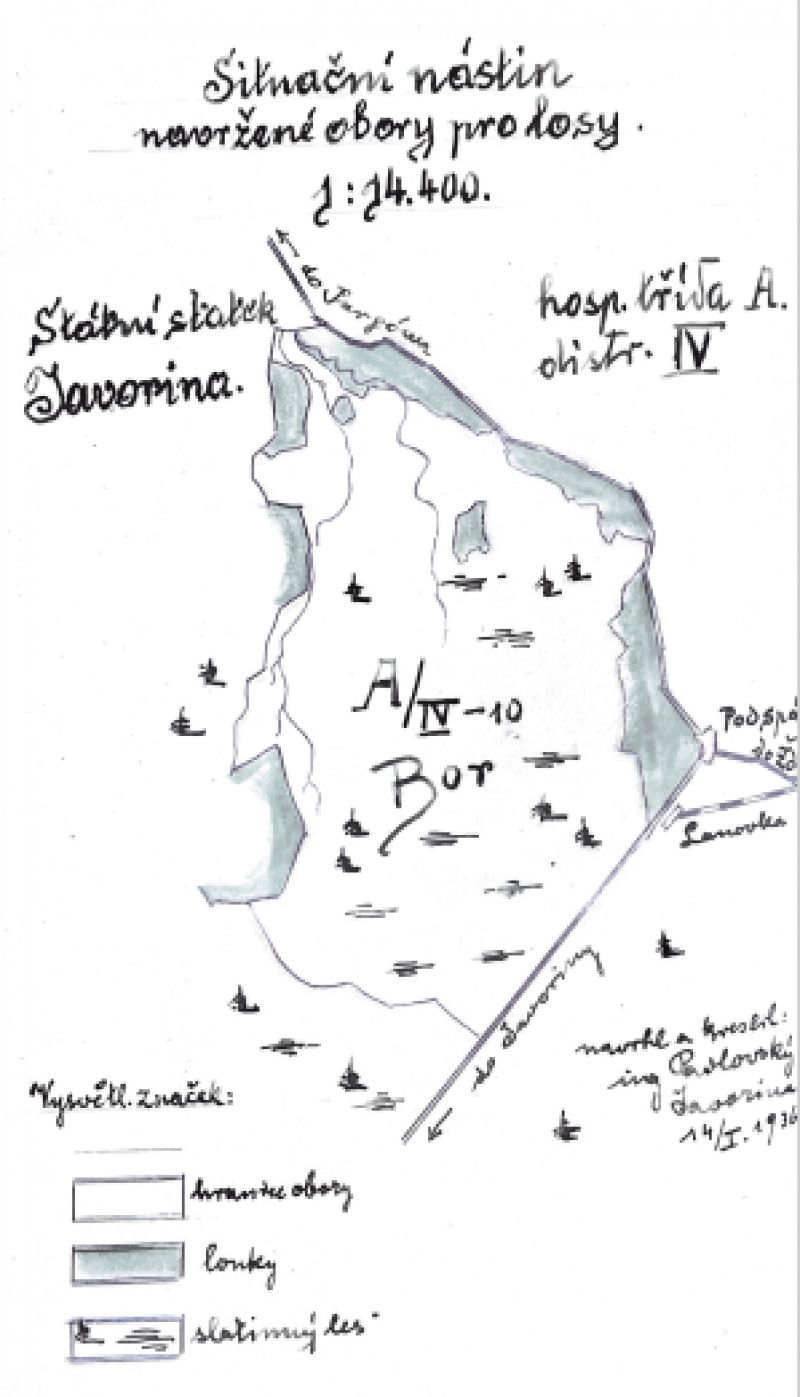 Situační nástin
navržené obory pro losy.
1:14.400.
do Jurgówa
Státní statek
Javorina.
hosp. třída A.
distr. IV
A/IV-10
Bor
Podspá
do Žd
Lanovka
do Javoriny
navrhl a kreslil:
ing Pavlovský
Javorina
14/I. 1936
Vysvětl. značek:
hranice obory
louky
slatinný les